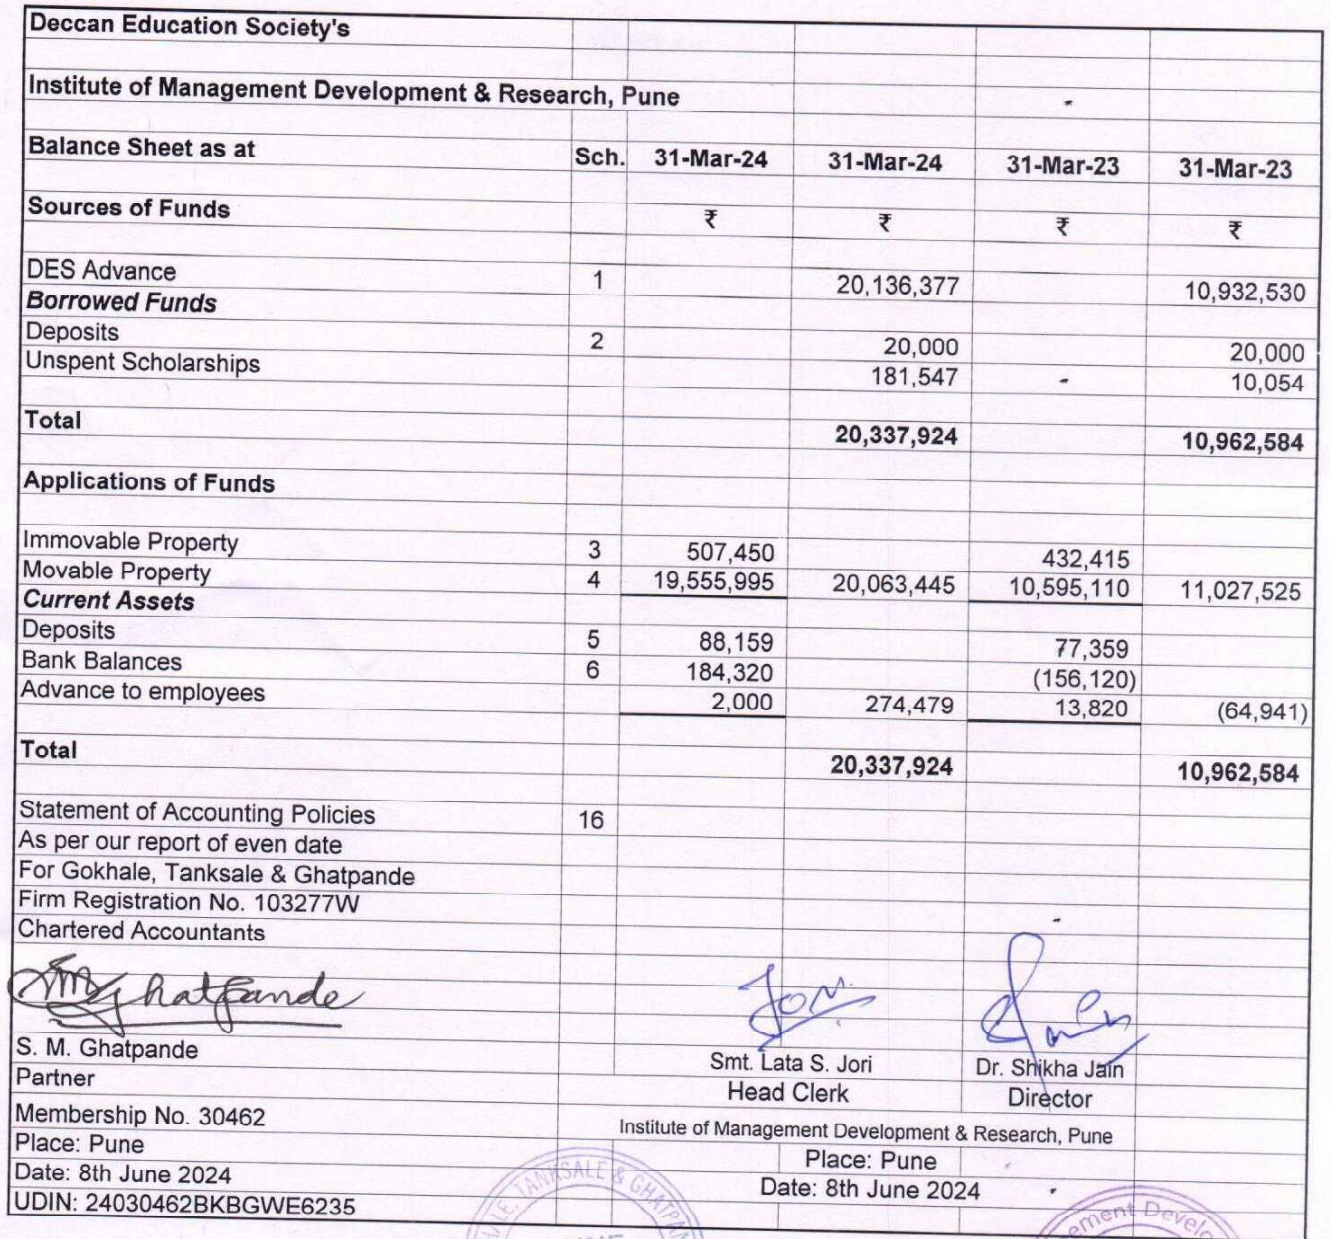 Deccan Education Society's
Institute of Management Development & Research, Pune
Balance Sheet as at Sch. 31-Mar-24 31-Mar-24 31-Mar-23 31-Mar-23
Sources of Funds ₹ ₹ ₹ ₹
DES Advance 1 20,136,377 10,932,530
Borrowed Funds
Deposits 2 20,000 20,000
Unspent Scholarships 181,547 - 10,054
Total 20,337,924 10,962,584
Applications of Funds
Immovable Property 3 507,450 432,415
Movable Property 4 19,555,995 20,063,445 10,595,110 11,027,525
Current Assets
Deposits 5 88,159 77,359
Bank Balances 6 184,320 (156,120)
Advance to employees 2,000 274,479 13,820 (64,941)
Total 20,337,924 10,962,584
Statement of Accounting Policies 16
As per our report of even date
For Gokhale, Tanksale & Ghatpande
Firm Registration No. 103277W
Chartered Accountants
SMGhatpande Jori
S. M. Ghatpande Smt. Lata S. Jori Dr. Shikha Jain
Partner Head Clerk Director
Membership No. 30462 Institute of Management Development & Research, Pune
Place: Pune Place: Pune
Date: 8th June 2024 Date: 8th June 2024
UDIN: 24030462BKBGWE6235
TANKSALE &